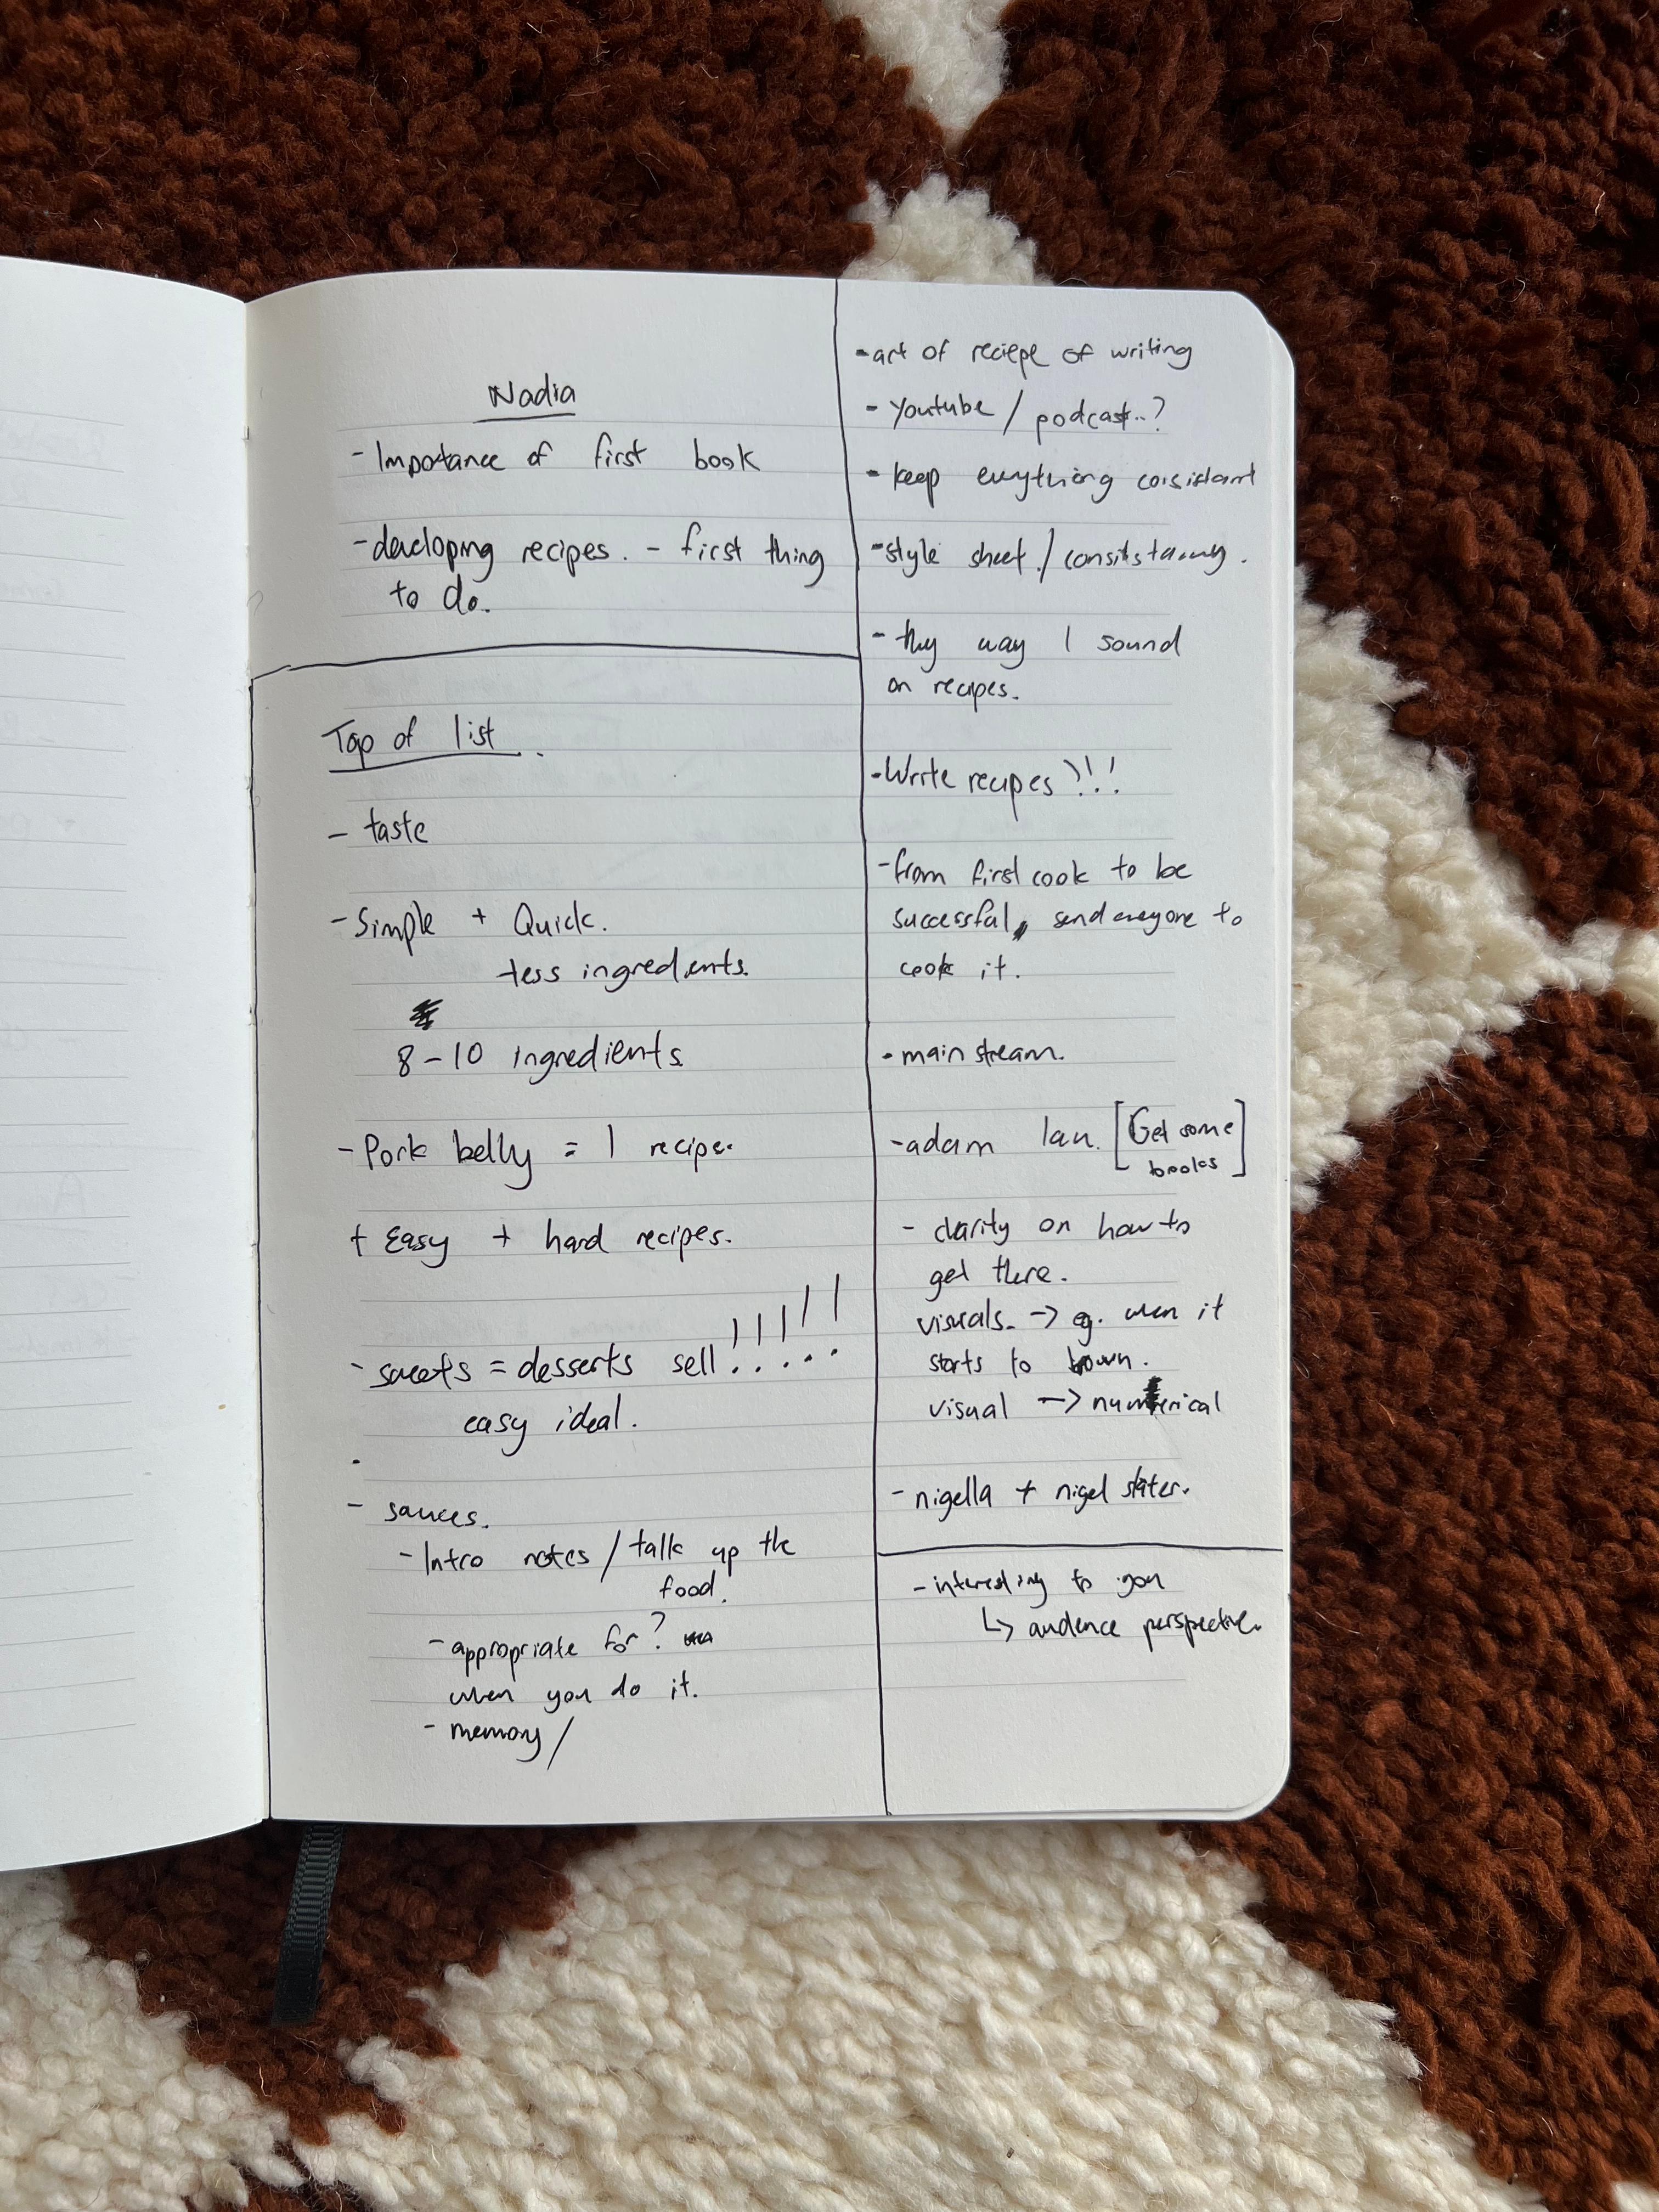 Nadia
- Impotance of first book
- developing recipes. - first thing
to do.
Top of list.
- taste
- Simple + Quick.
- less ingredients.
8-10 ingredients
- Pork belly = 1 recipe.
+ Easy + hard recipes.
- sweets = desserts sell !!!!!
easy ideal.
- sauces.
- Intro notes / talk up the
food.
- appropriate for?
when you do it.
- memory /
- art of reciepe of writing
- Youtube / podcast..?
- keep evrything consistant
- style sheet. /
- the way I sound
on recipes.
- Write recipes!!!
- from first cook to be
successful, send everyone to
cook it.
- main stream.
- adam [Get some
books]
- clarity on how to
get there.
visuals. -> eg. when it
starts to brown.
visual -> numerical
- nigella + nigel slater.
- interesting to you
↳ audence perspective.